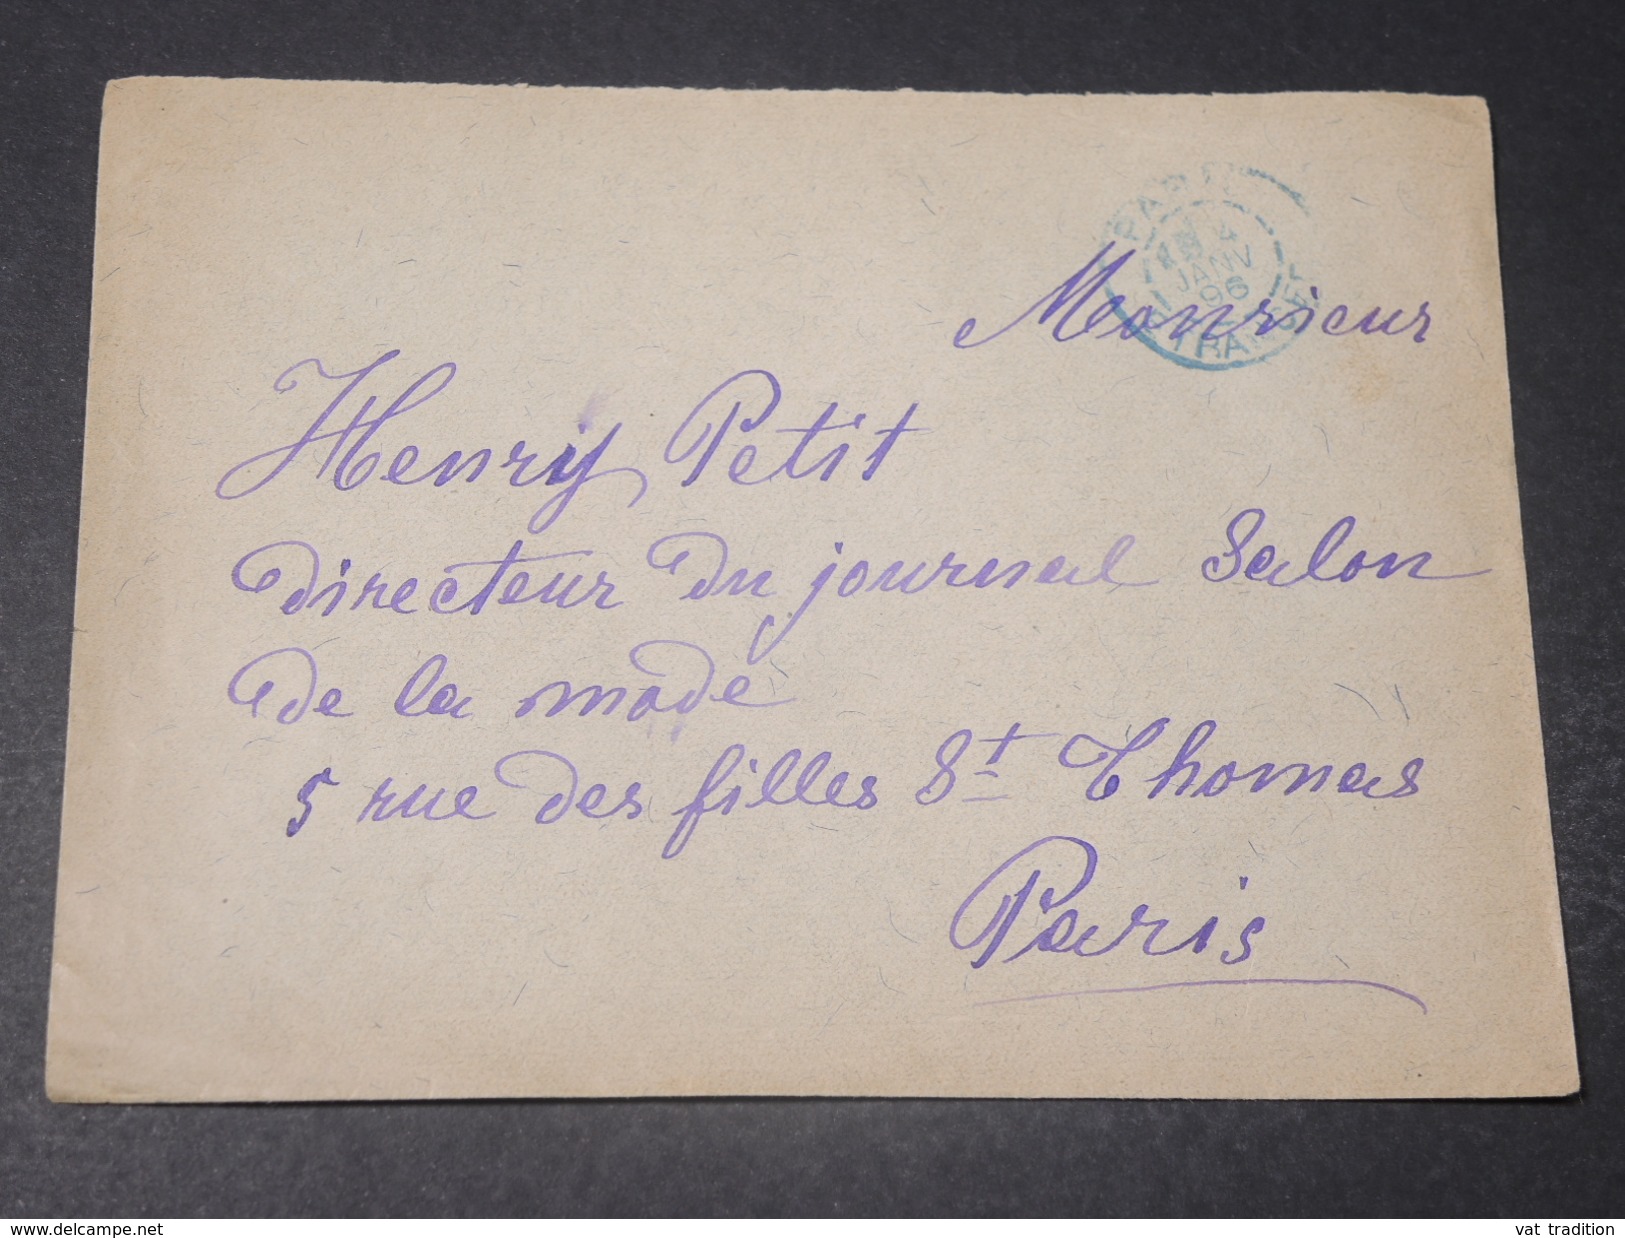 PARIS
JANV
96
ETRANGER
Monsieur
Henry Petit
directeur du journal Salon
de la mode
5 rue des filles St Thomas
Paris
www.delcampe.net
vat tradition